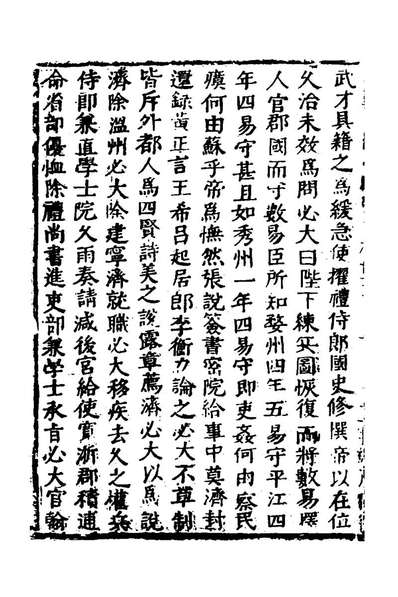 武才具籍之爲緩急使擢禮侍郎國史修撰帝以在位
久治未效爲問必大曰陛下練兵圖恢復而將數易擇
人官郡國而守數易臣所知婺州四年五易守平江四
年四易守甚且如秀州一年四易守即吏姦何由察民
瘼何由蘇乎帝爲憮然張說簽書密院給事中莫濟封
還録黄正言王希吕起居郎李衡力論之必大不草制
皆斥外都人爲四賢詩美之說露章薦濟必大以爲說
濟除溫州必大除建寧濟就職必大移疾去久之權兵
侍郎兼直學士院久雨奏請减後宫給使寛浙郡積逋
命省部優恤除禮尚書進吏部兼學士承旨必大官翰